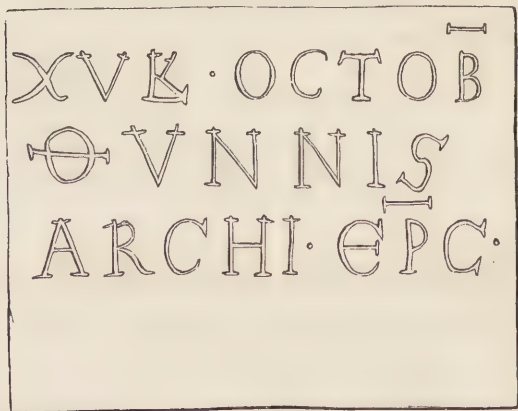 XVK · OCTOB̄
ΘVNNIS
ARCHI · EP̄C ·